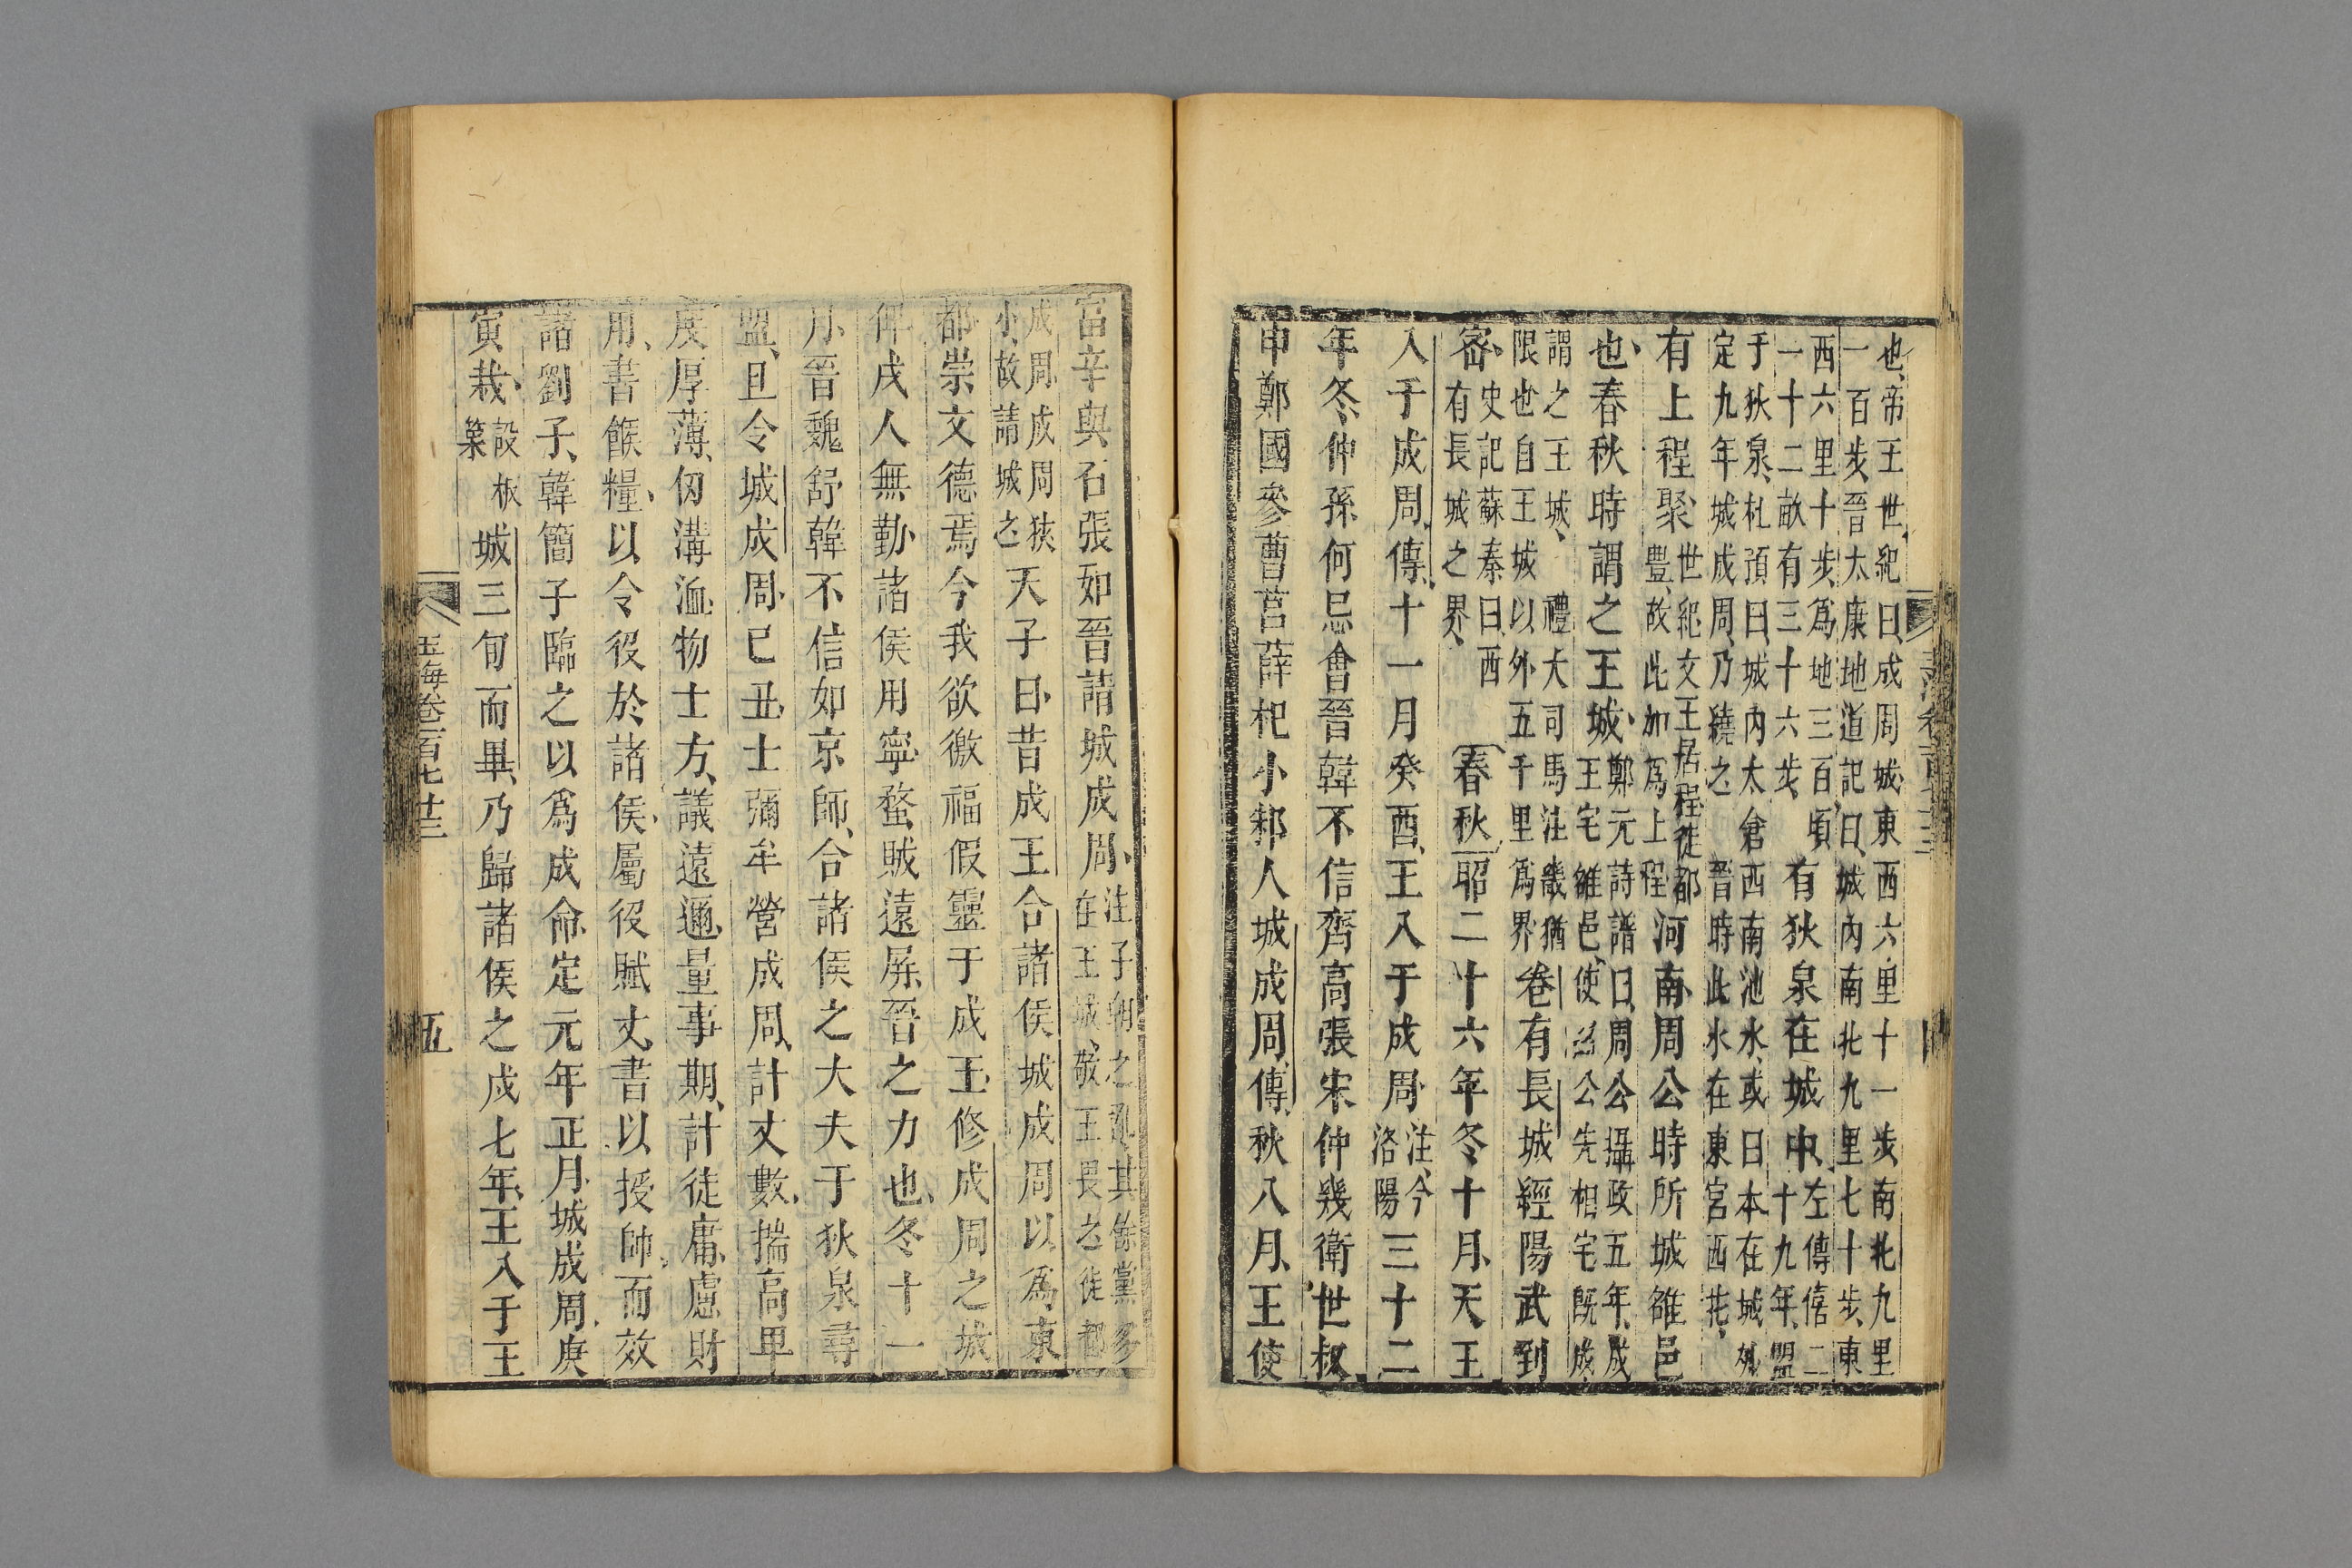 也帝王世紀曰成周城東西六里十一步南北九里
一百步晉太康地道記曰城內南北九里七十步東
西六里十步爲地三百頃
一十二畝有三十六步
有狄泉在城中
左傳僖二
十九年盟
于狄泉杜預曰城內太倉西南池水或曰本在城外
定九年城成周乃繞之　晉時此水在東宮西北
有上程聚
世紀文王居程徙都
豐故此加爲上程
河南周公時所城雒邑
也春秋時謂之王城
鄭元詩譜曰周公攝政五年成
王宅雒邑使召公先相宅旣成
謂之王城　禮大司馬注畿猶
限也自王城以外五千里爲界
卷有長城經陽武到
密
史記蘇秦曰西
有長城之界
春秋昭二十六年冬十月天王
入于成周傳十一月癸酉王入于成周
注今
洛陽
三十二
年冬仲孫何忌會晉韓不信齊高張宋仲幾衛世叔
申鄭國參曹莒薛杞小邾人城成周傳秋八月王使
富辛與石張如晉請城成周
注子朝之亂其餘黨多
在王城敬王畏之徙都
成周成周狹
小故請城之
天子曰昔成王合諸侯城成周以爲東
都崇文德焉今我欲徼福假靈于成王修成周之城
俾戍人無勤諸侯用寧蝥賊遠屏晉之力也冬十一
月晉魏舒韓不信如京師合諸侯之大夫于狄泉尋
盟且令城成周己丑士彌牟營成周計丈數揣高卑
度厚薄仞溝洫物土方議遠邇量事期計徒庸慮財
用書餱糧以令役於諸侯屬役賦丈書以授帥而效
諸劉子韓簡子臨之以爲成命定元年正月城成周庚
寅栽
設板
築
城三旬而畢乃歸諸侯之戍七年王入于王
玉海卷一百七十三
五